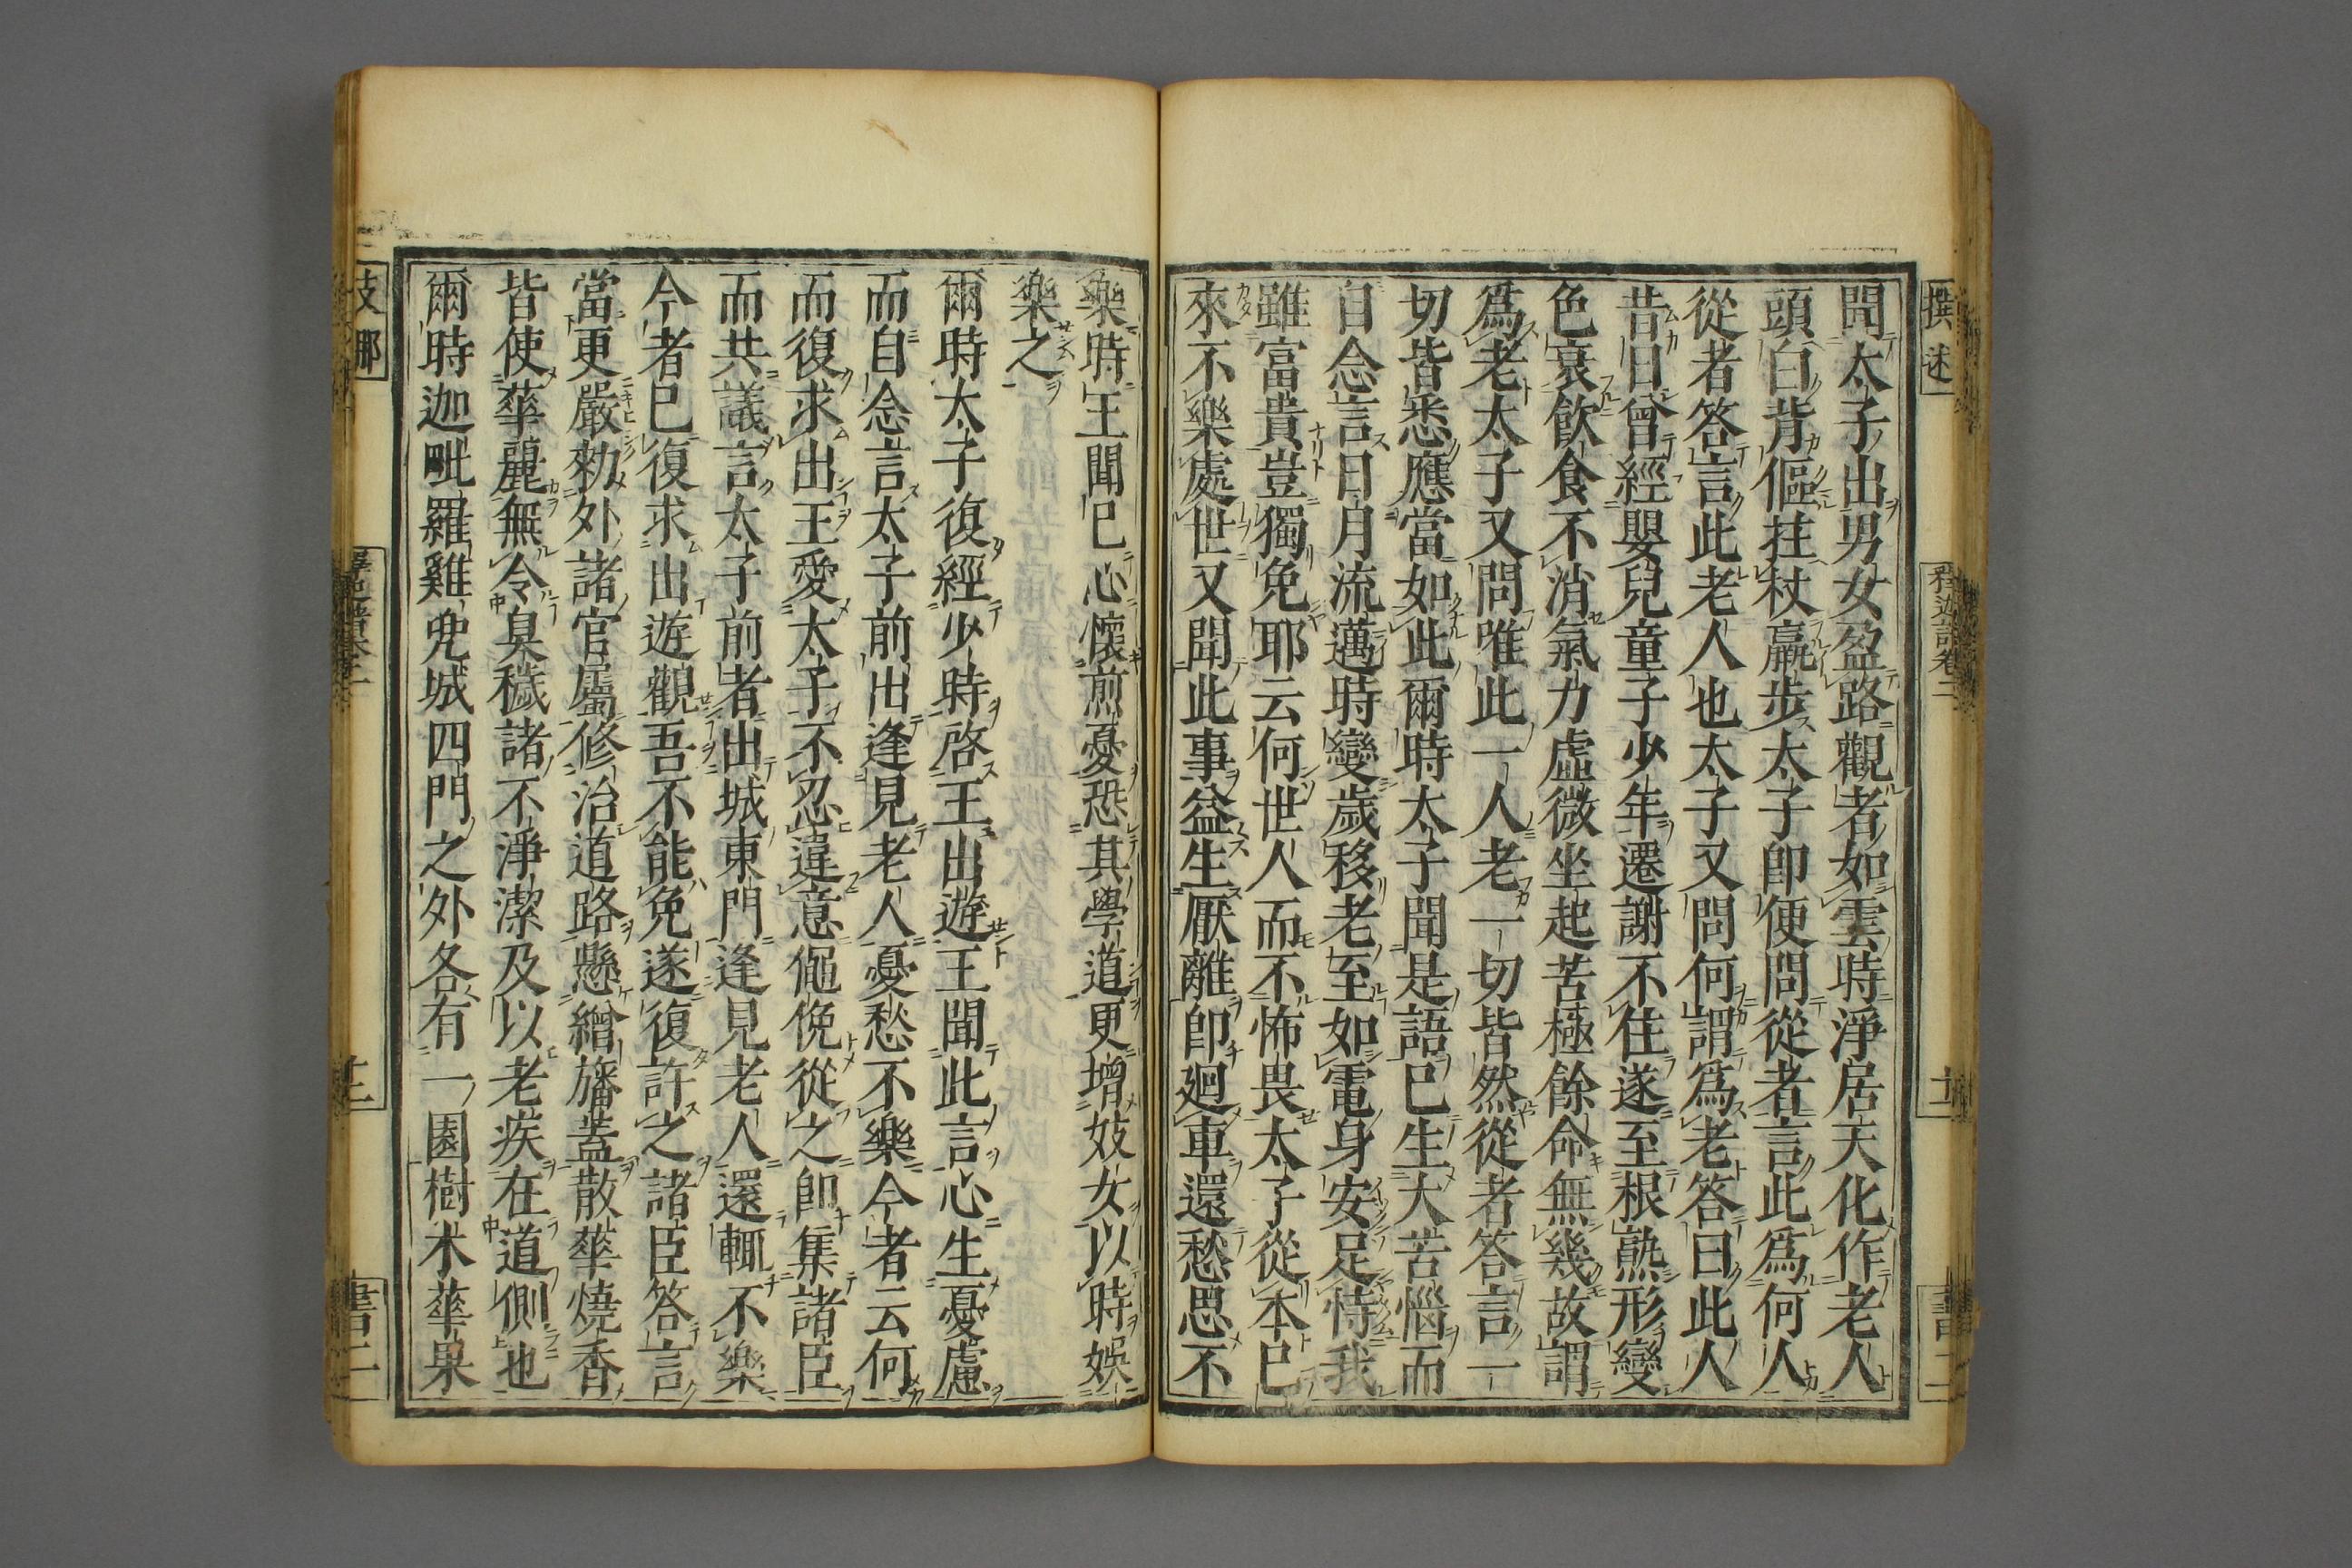 撰述
釋迦譜卷二
聞太子出男女盈路觀者如雲時淨居天化作老人
頭白背傴拄杖羸步太子卽便問從者言此爲何人
從者答言此老人也太子又問何謂爲老答曰此人
昔日曾經嬰兒童子少年遷謝不住遂至根熟形變
色衰飮食不消氣力虛微坐起苦極餘命無幾故謂
爲老太子又問唯此一人老一切皆然從者答言一
切皆悉應當如此爾時太子聞是語已生大苦惱而
自念言日月流邁時變歲移老至如電身安足恃我
雖富貴豈獨免耶云何世人而不怖畏太子從本已
來不樂處世又聞此事益生厭離卽廻車還愁思不
樂時王聞已心懷煎憂恐其學道更增妓女以時娛
樂之
爾時太子復經少時啓王出遊王聞此言心生憂慮
而自念言太子前出逢見老人憂愁不樂今者云何
而復求出王愛太子不忍違意僶俛從之卽集諸臣
而共議言太子前者出城東門逢見老人還輒不樂
今者已復求出遊觀吾不能免遂復許之諸臣答言
當更嚴勑外諸官屬修治道路懸繒旛蓋散華燒香
皆使華麗無令臭穢諸不淨潔及以老疾在道側也
爾時迦毗羅雞兜城四門之外各有一園樹木華果
支那